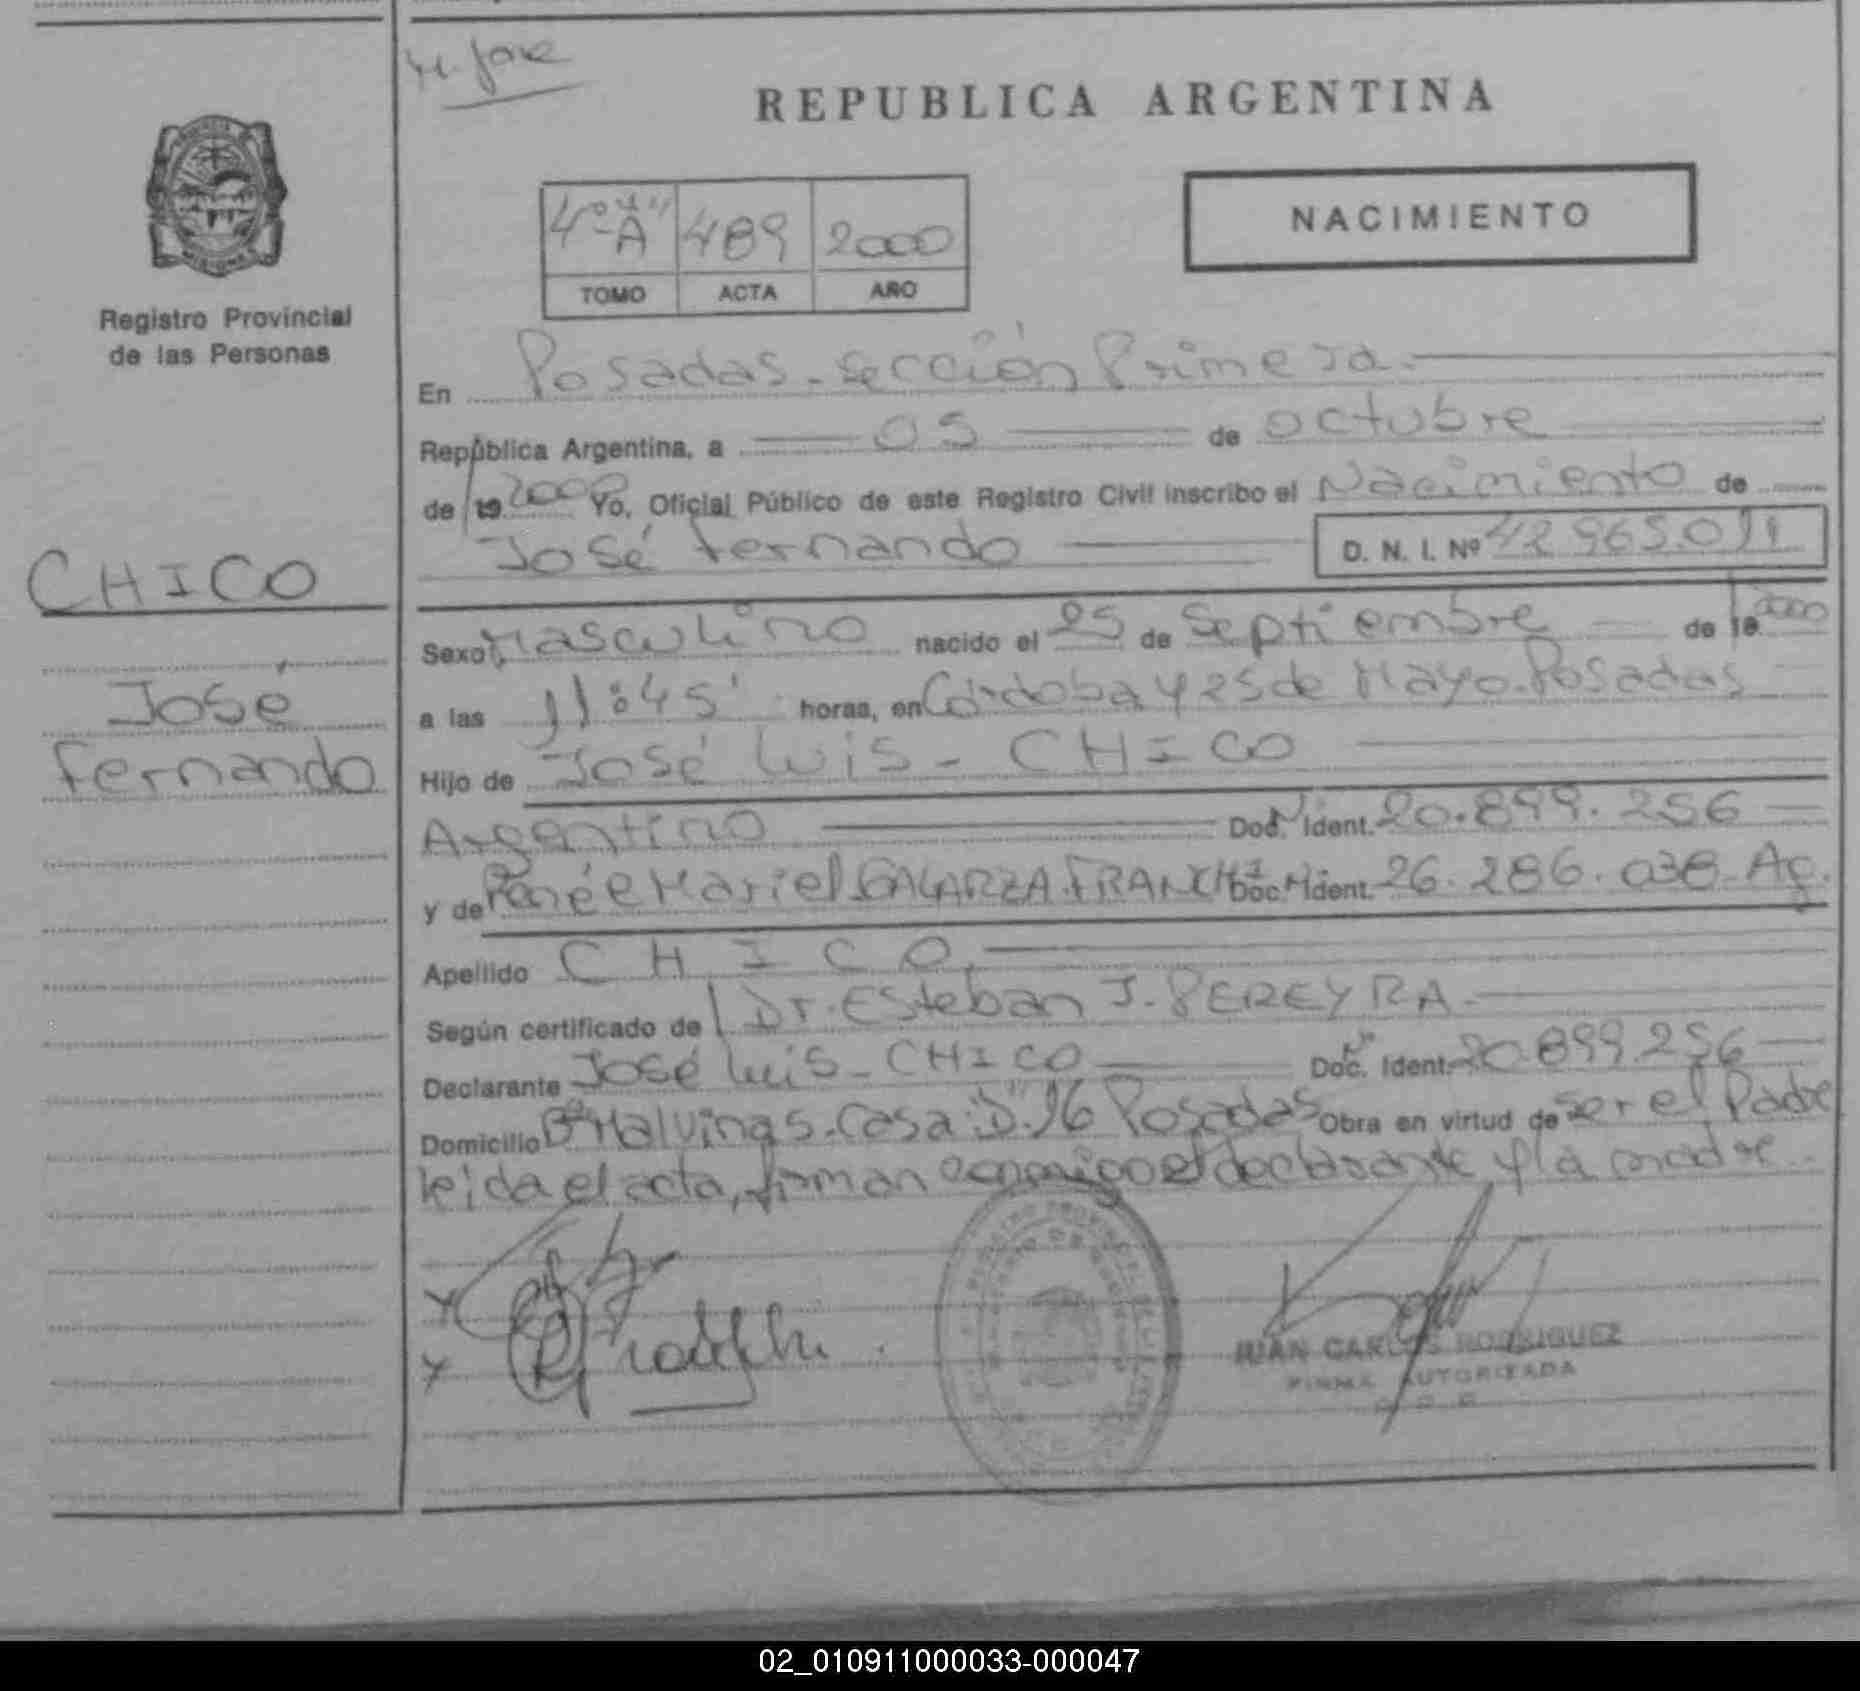 REPUBLICA ARGENTINA
4º "A" 489 2000
TOMO ACTA AÑO
NACIMIENTO
Registro Provincial
de las Personas
CHICO
José
Fernando
En Posadas - Sección Primera.
República Argentina, a 05 de octubre
de 19 2000 Yo, Oficial Público de este Registro Civil inscribo el Nacimiento de
José Fernando D. N. I. Nº 42.965.011
Sexo Masculino nacido el 25 de Septiembre de 19 2000
a las 11:45' horas, en Córdoba y 25 de Mayo. Posadas
Hijo de José Luis - CHICO
Argentino Doc. Ident. 20.899.256
y de Renée Mariel GALARZA FRANCHI Doc. Ident. 26.286.038 - Ag.
Apellido CHICO.
Según certificado de Dr. Esteban J. PEREYRA.
Declarante José Luis - CHICO Doc. Ident. 20.899.256
Domicilio Bº Malvinas. Casa: "D". 16 Posadas Obra en virtud de ser el Padre
leída el acta, firman conmigo el declarante y la madre.
JUAN CARLOS RODRIGUEZ
FIRMA AUTORIZADA
02_010911000033-000047